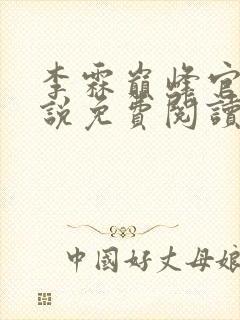 李霖巔峰官
說免費閱讀
中國好丈母娘